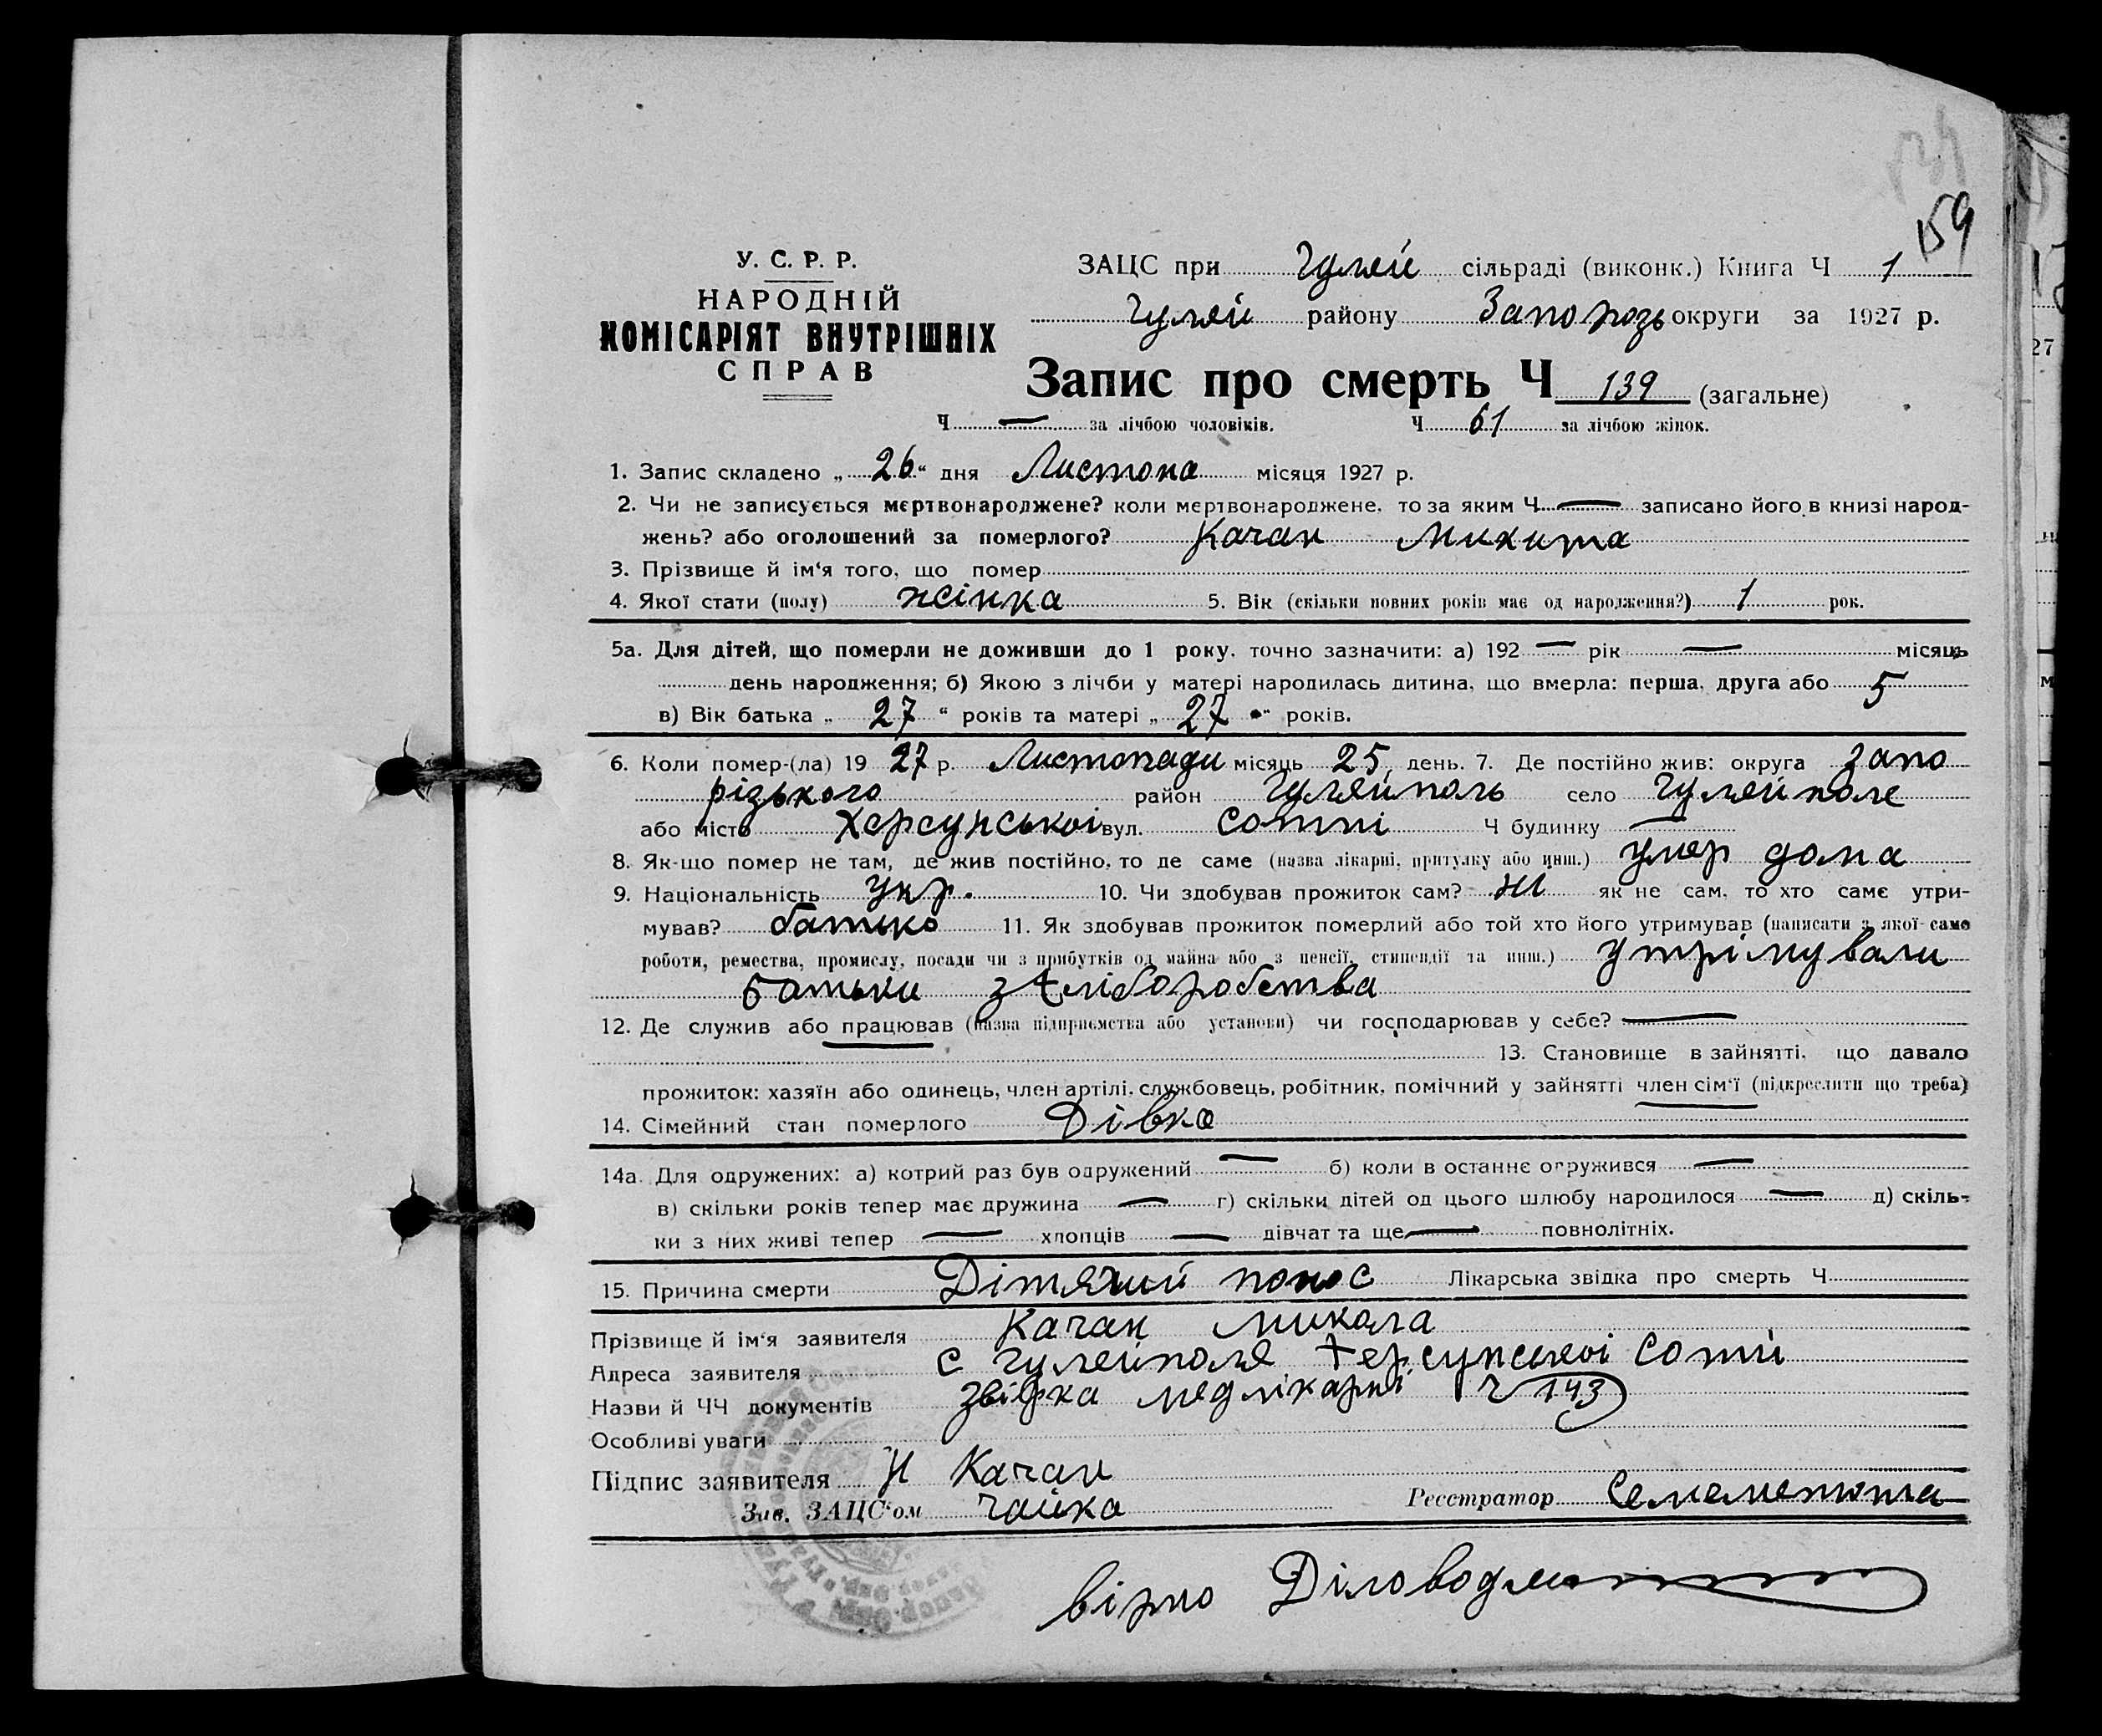 159
У. С. Р. Р.
НАРОДНІЙ
КОМІСАРІЯТ ВНУТРІШНІХ
СПРАВ
ЗАЦС при Гуляй сільраді (виконк.) Книга Ч 1
Гуляй району Запорозь округи за 1927 р.
Запис про смерть Ч 139 (загальне)
Ч — за лічбою чоловіків. Ч 61 за лічбою жінок.
1. Запис складено „ 26 “ дня Листопа місяця 1927 р.
2. Чи не записується мертвонароджене? коли мертвонароджене, то за яким Ч — записано його в книзі народ-
жень? або оголошений за померлого? Качан Микита
3. Прізвище й ім‘я того, що помер
4. Якої стати (полу) жінка 5. Вік (скільки повних років має од народження?) 1 рок.
5а. Для дітей, що померли не доживши до 1 року, точно зазначити: а) 192 — рік — місяць
день народження; б) Якою з лічби у матері народилась дитина, що вмерла: перша, друга або 5
в) Вік батька „ 27 “ років та матері „ 27 “ років.
6. Коли помер-(ла) 19 27 р. Листопади місяць 25 день. 7. Де постійно жив: округа Запо
різького район Гуляйполь село Гуляйполе
або місто Херсунської вул. сотні Ч будинку —
8. Як-що помер не там, де жив постійно, то де саме (назва лікарні, притулку або инш.) умер дома
9. Національність укр. 10. Чи здобував прожиток сам? ні як не сам, то хто саме утри-
мував? батько 11. Як здобував прожиток померлий або той хто його утримував (написати з якої саме
роботи, ремества, промислу, посади чи з прибутків од майна або з пенсії, стипендії та инш.) утрімували
батьки з хліборобства
12. Де служив або працював (назва підприємства або установи) чи господарював у себе? —
13. Становище в зайнятті, що давало
прожиток: хазяїн або одинець, член артілі, службовець, робітник, помічний у зайнятті член сім‘ї (підкреслити що треба)
14. Сімейний стан померлого Дівка
14а. Для одружених: а) котрий раз був одружений — б) коли в останнє одружився —
в) скільки років тепер має дружина — г) скільки дітей од цього шлюбу народилося — д) скіль-
ки з них живі тепер — хлопців — дівчат та ще — повнолітніх.
15. Причина смерти Дітячий понос Лікарська звідка про смерть Ч
Прізвище й ім‘я заявителя Качан Микола
Адреса заявителя с Гуляйполя Херсунської сотні
Назви й ЧЧ документів звідка медлікарні Ч 143
Особливі уваги
Підпис заявителя Н Качан
Зав. ЗАЦС‘ом Чайка Реєстратор
вірно Діловод